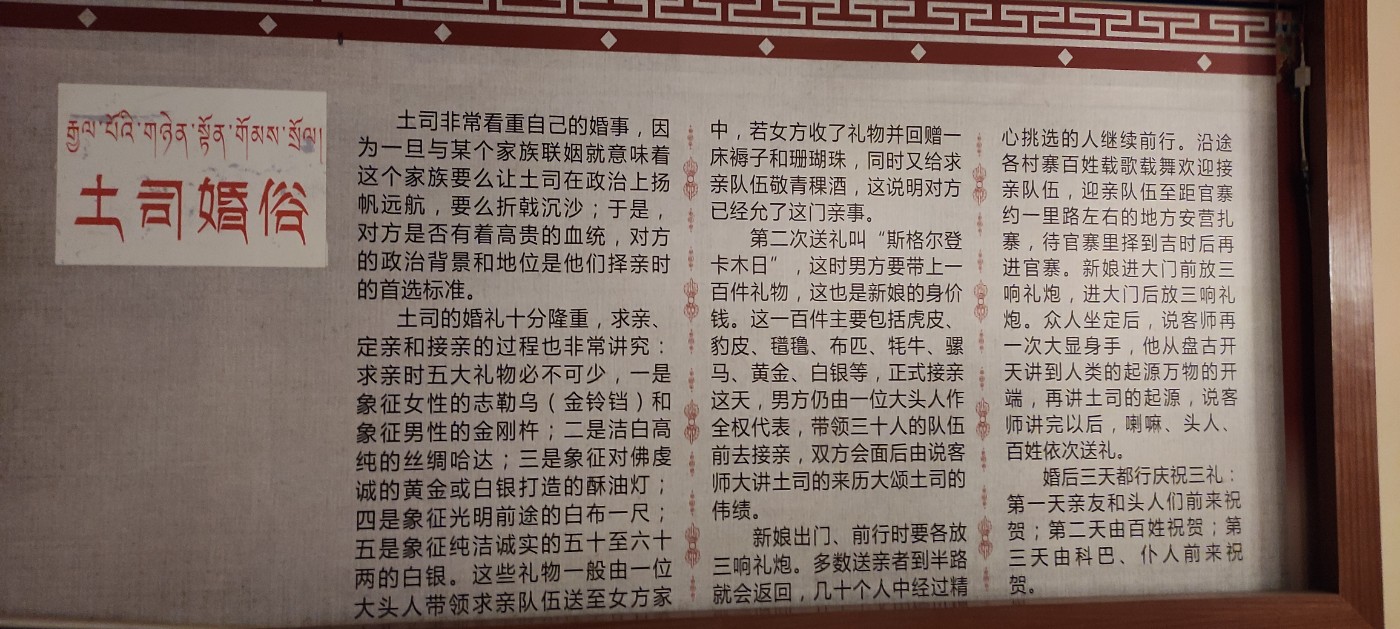 རྒྱལ་པོའི་གཉེན་སྟོན་གོམས་སྲོལ།
土司婚俗
土司非常看重自己的婚事，因
为一旦与某个家族联姻就意味着
这个家族要么让土司在政治上扬
帆远航，要么折戟沉沙；于是，
对方是否有着高贵的血统，对方
的政治背景和地位是他们择亲时
的首选标准。
土司的婚礼十分隆重，求亲、
定亲和接亲的过程也非常讲究：
求亲时五大礼物必不可少，一是
象征女性的志勒乌（金铃铛）和
象征男性的金刚杵；二是洁白高
纯的丝绸哈达；三是象征对佛虔
诚的黄金或白银打造的酥油灯；
四是象征光明前途的白布一尺；
五是象征纯洁诚实的五十至六十
两的白银。这些礼物一般由一位
大头人带领求亲队伍送至女方家
中，若女方收了礼物并回赠一
床褥子和珊瑚珠，同时又给求
亲队伍敬青稞酒，这说明对方
已经允了这门亲事。
第二次送礼叫“斯格尔登
卡木日”，这时男方要带上一
百件礼物，这也是新娘的身价
钱。这一百件主要包括虎皮、
豹皮、氆氇、布匹、牦牛、骡
马、黄金、白银等，正式接亲
这天，男方仍由一位大头人作
全权代表，带领三十人的队伍
前去接亲，双方会面后由说客
师大讲土司的来历大颂土司的
伟绩。
新娘出门、前行时要各放
三响礼炮。多数送亲者到半路
就会返回，几十个人中经过精
心挑选的人继续前行。沿途
各村寨百姓载歌载舞欢迎接
亲队伍，迎亲队伍至距官寨
约一里路左右的地方安营扎
寨，待官寨里择到吉时后再
进官寨。新娘进大门前放三
响礼炮，进大门后放三响礼
炮。众人坐定后，说客师再
一次大显身手，他从盘古开
天讲到人类的起源万物的开
端，再讲土司的起源，说客
师讲完以后，喇嘛、头人、
百姓依次送礼。
婚后三天都行庆祝三礼：
第一天亲友和头人们前来祝
贺；第二天由百姓祝贺；第
三天由科巴、仆人前来祝
贺。